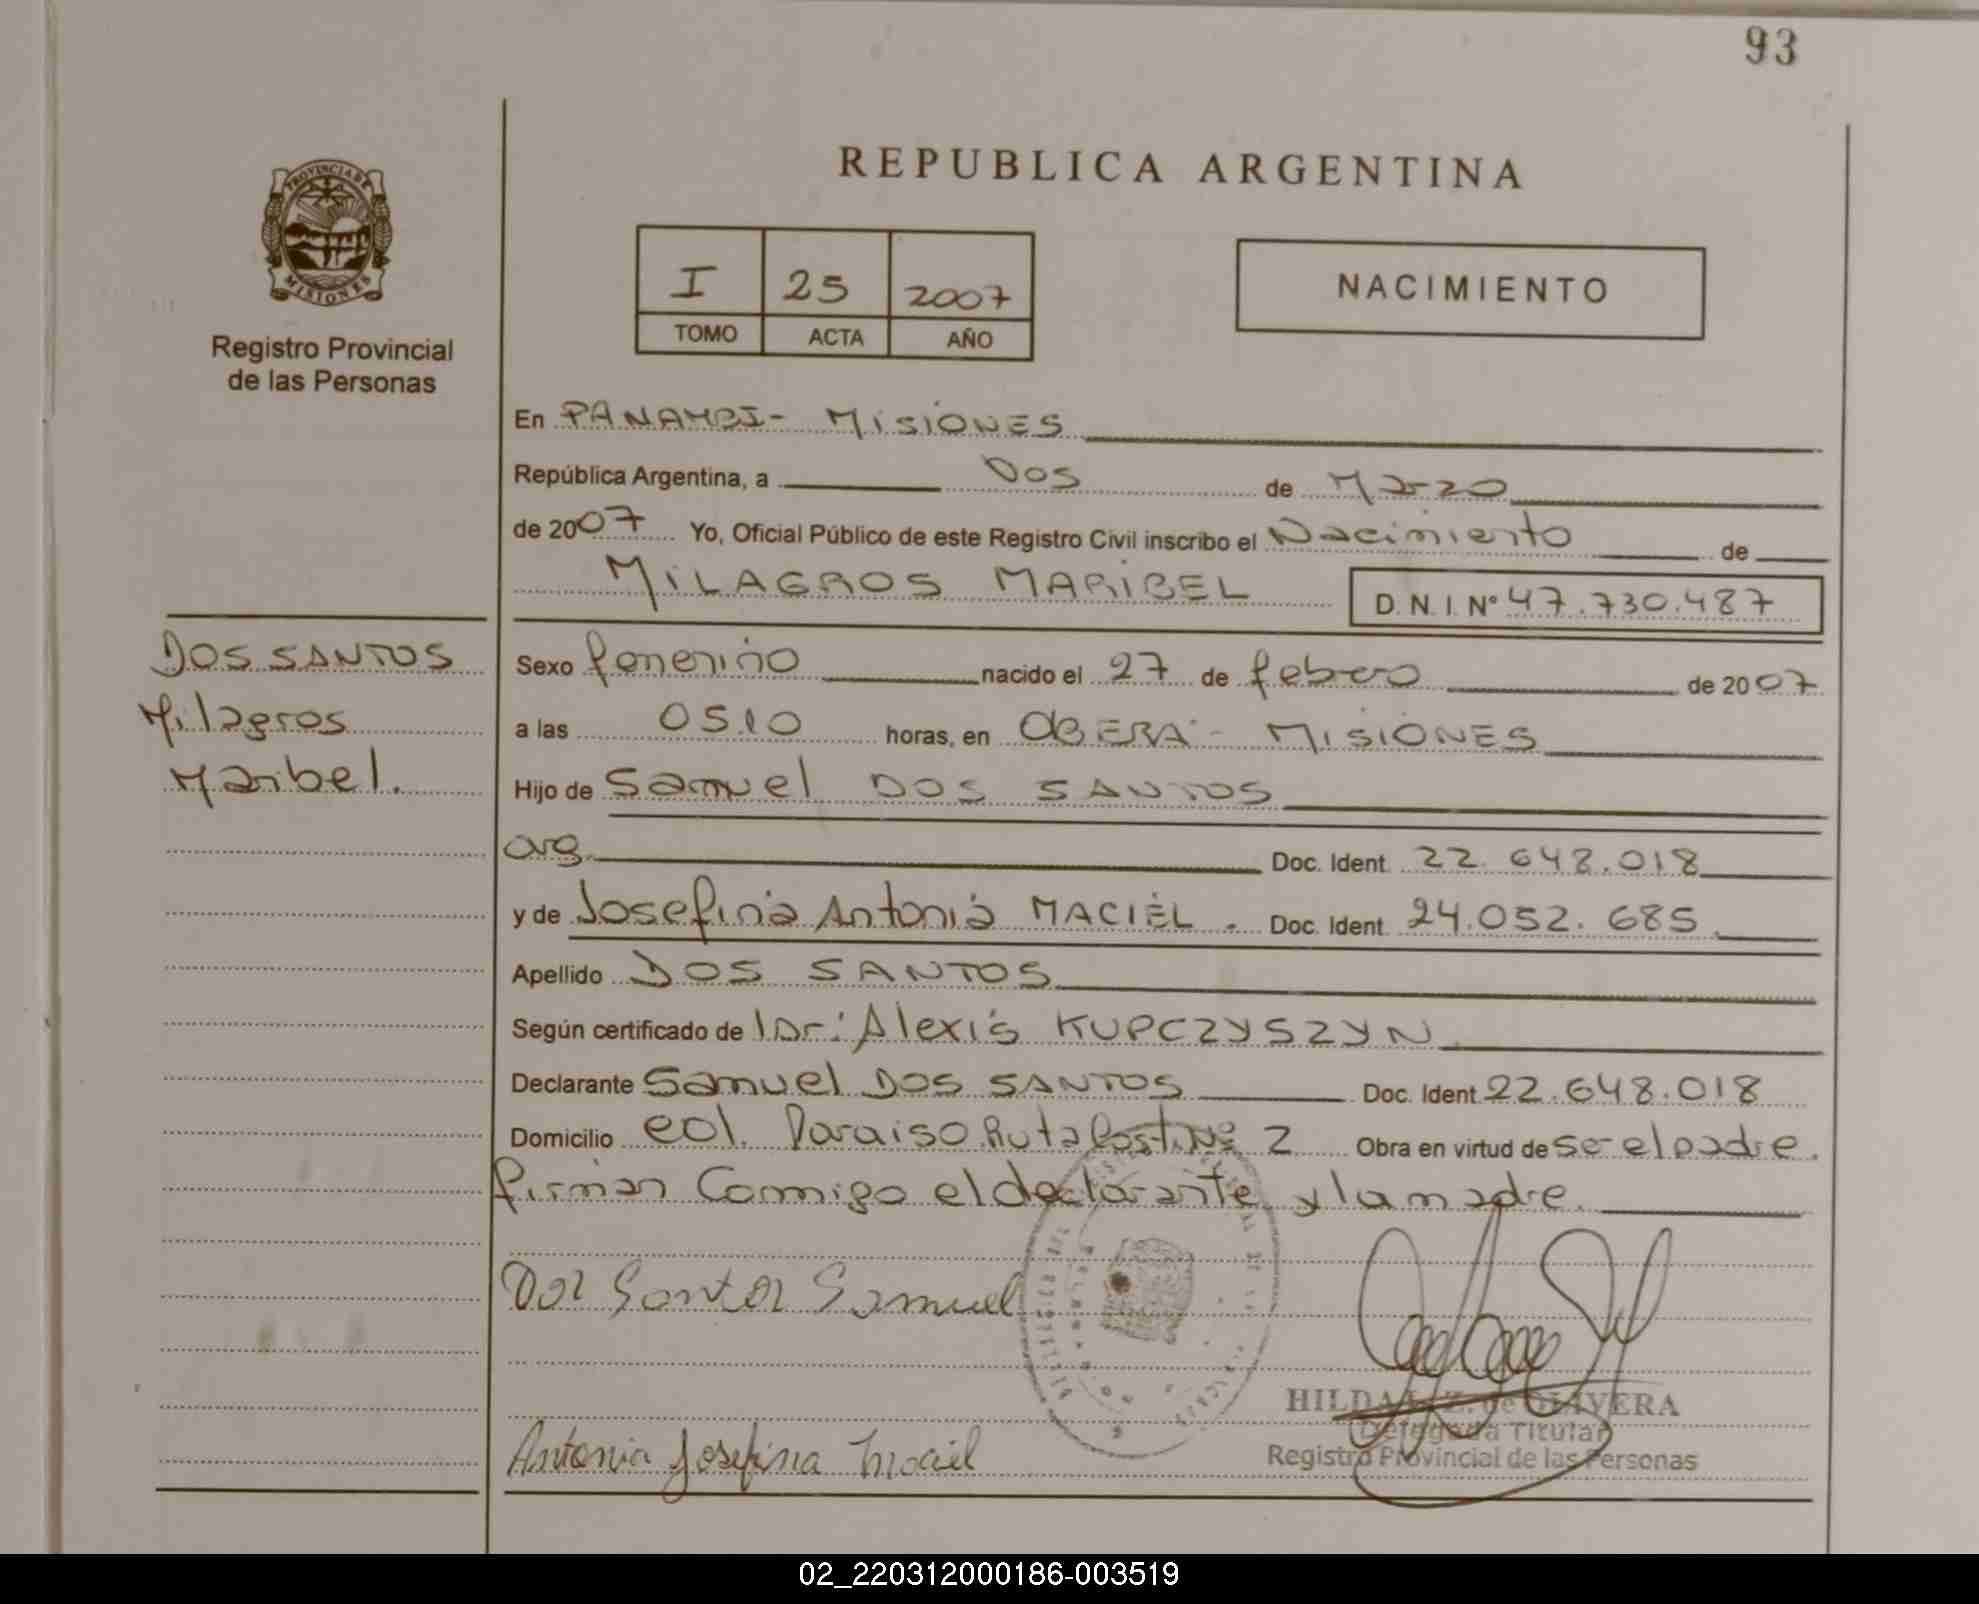 93
PROVINCIA DE
MISIONES
Registro Provincial
de las Personas
REPUBLICA ARGENTINA
I 25 2007
TOMO ACTA AÑO
NACIMIENTO
En PANAMBI - MISIONES
República Argentina, a Dos de Marzo
de 2007 Yo, Oficial Público de este Registro Civil inscribo el Nacimiento de
MILAGROS MARIBEL D.N.I. Nº 47.730.487
DOS SANTOS
Milagros
Maribel.
Sexo femenino nacido el 27 de febrero de 2007
a las 05.10 horas, en OBERA - MISIONES
Hijo de Samuel DOS SANTOS
arg. Doc. Ident. 22.648.018
y de Josefina Antonia MACIEL. Doc. Ident. 24.052.685
Apellido DOS SANTOS
Según certificado de Dr: Alexis KUPCZYSZYN
Declarante Samuel DOS SANTOS Doc. Ident. 22.648.018
Domicilio col. Paraiso Ruta Cost. Nº 2 Obra en virtud de ser el padre.
firman Conmigo el declarante y la madre.
Dos Santos Samuel
HILDA de OLIVERA
Delegada Titular
Registro Provincial de las Personas
Antonia Josefina Maciel
02_220312000186-003519